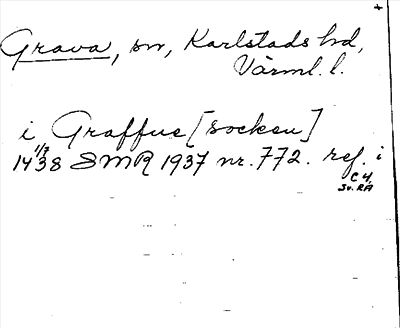 Grava, sn, Karlstads hd,
Värml. l.
i Graffue [socken]
1/7
1438 SMR 1937 nr. 772. ref. i
C 4,
Sv. RA